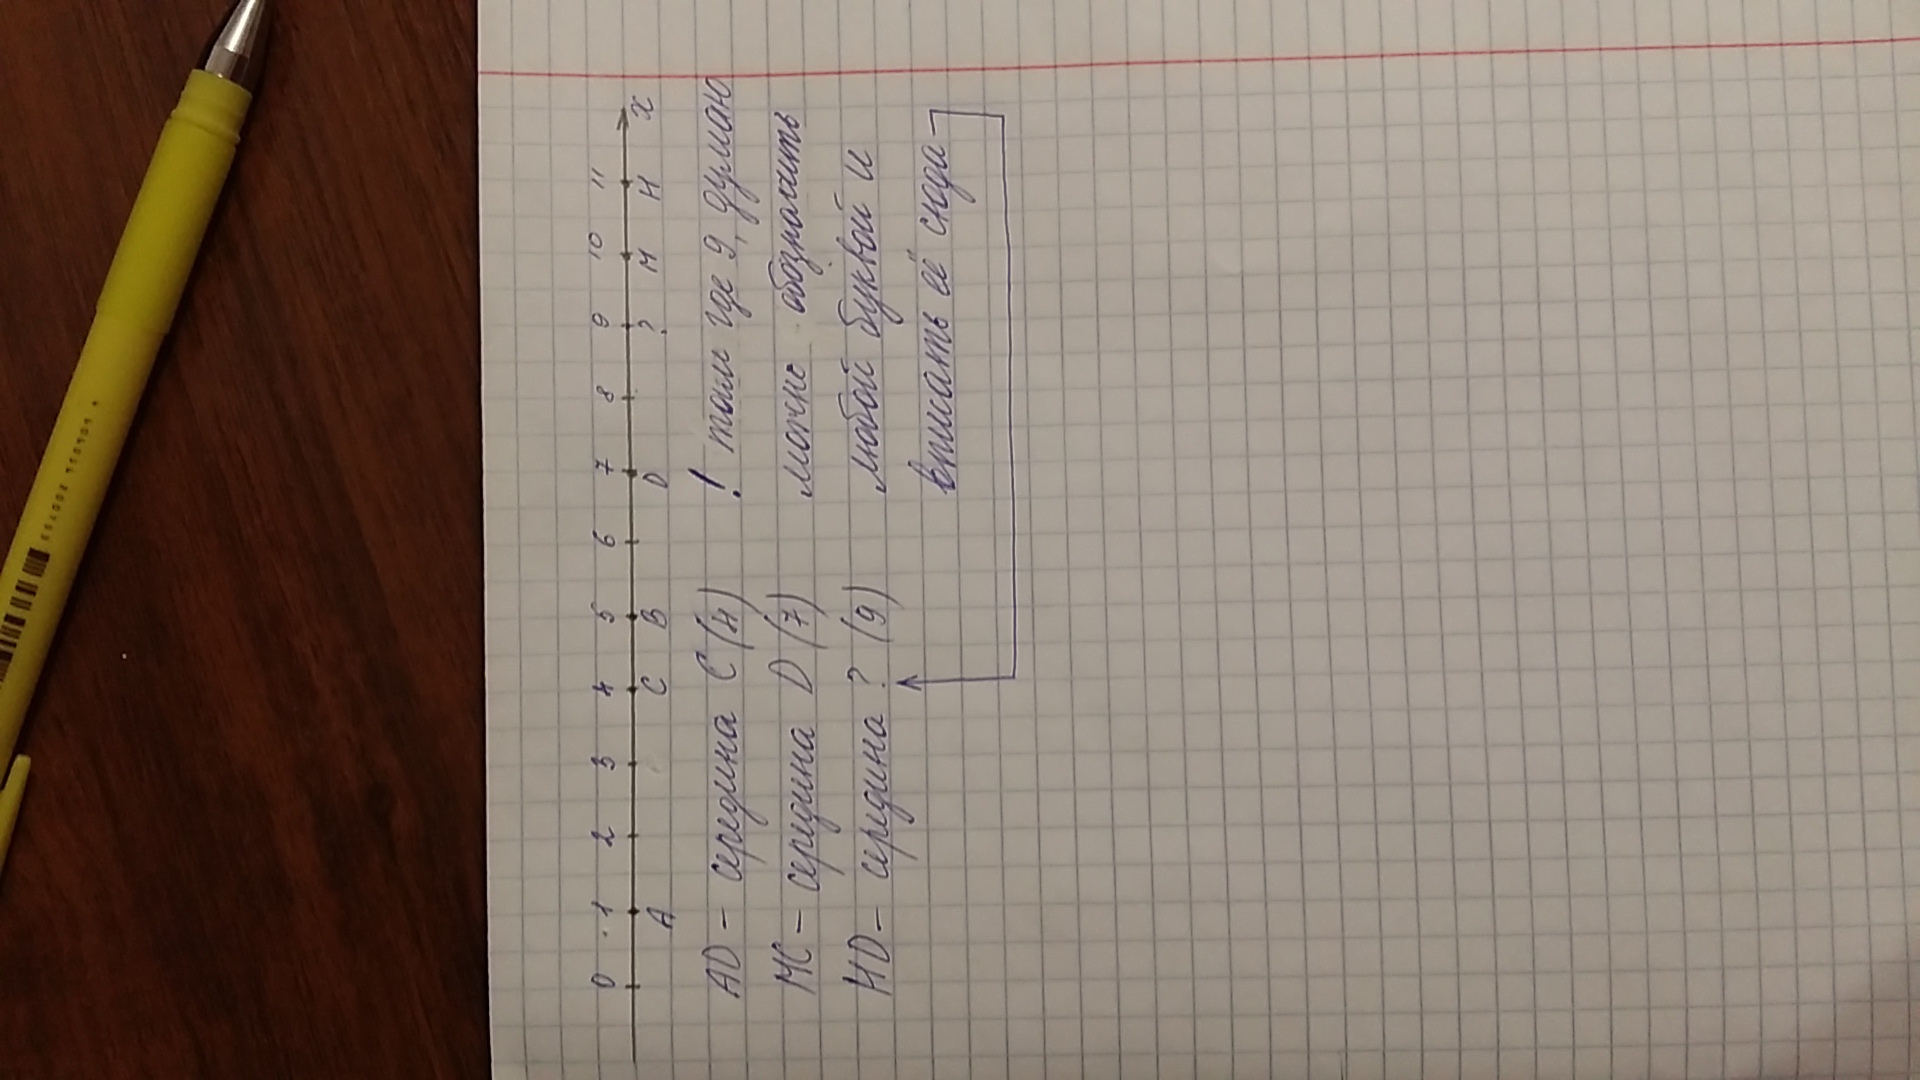 0 1 2 3 4 5 6 7 8 9 10 11
A C B D ? M H x
AD - середина C (4)
MC - середина D (7)
HD - середина ? (9)
! там где 9, думаю
можно обозначить
любой буквой и
вписать её сюда